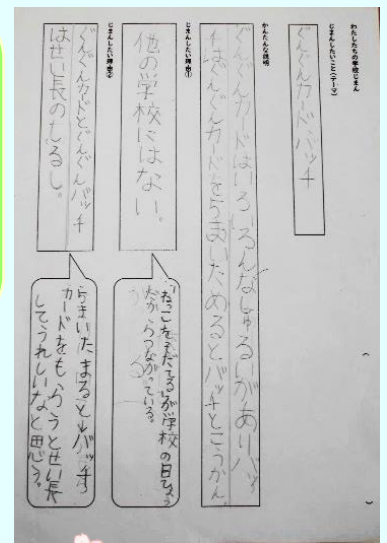 わたしたちの学校じまん
じまんしたいこと(テーマ)
ぐんぐんカード、バッチ
かんたんな説明
ぐんぐんカードはいろいろんなしゅるいがありバッ
チはぐんぐんカードを5まいためるとバッチとこうかん。
じまんしたい理由①
他の学校にはない。
「ねっこをそだてる」が学校の目ひょう
だからつながっている。
じまんしたい理由②
ぐんぐんカードとぐんぐんバッチ
はせい長のしるし。
5まいたまると→バッチ
カードをもらうとせい長
してうれしいなと思う。